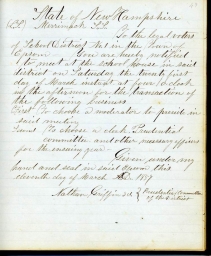 State of New Hampshire
Merrimack SS
To the legal voters
of School District No 1 in the Town of
Epsom You are hereby notified
to meet at the school house in said
district on Saturday the twenty first
day of March instant at four o'clock
in the afternoon for the transaction of
the following business
First To choose a moderator to preside
in said meeting
To choose a clerk Prudential
committee and other necessary officers
for the ensuing year
Given under my
hand and seal in said this
eleventh day of March 1857
Nathan Griffin Prudential Committee
of the District